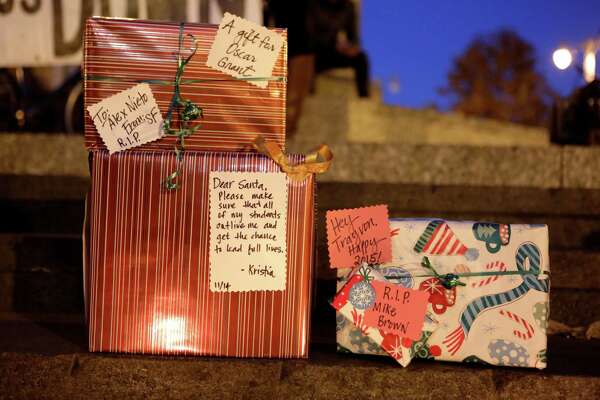 A gift for
Oscar
Grant
To:
Alex Nieto
From: SF
R.I.P.
Dear Santa,
Please make
sure that all
of my students
outlive me and
get the chance
to lead full lives.
- Kristia
11/14
Hey
Trayvon,
Happy
2015!
R.I.P.
Mike
Brown